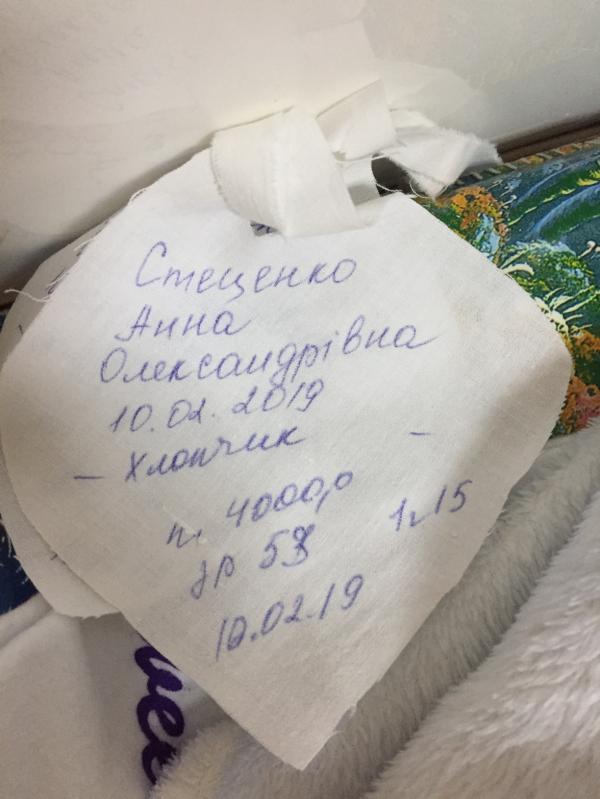 Стеценко
Анна
Олександрівна
10.02.2019
- Хлопчик -
п. 4000,0
зр 58 1ч15
10.02.19